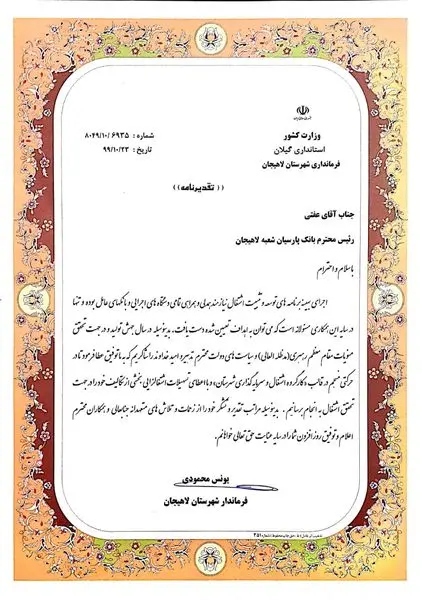 وزارت کشور
استانداری گیلان
فرمانداری شهرستان لاهیجان
شماره : ۸۰۴۹/۱۰/۶۹۳۵
تاریخ : ۹۹/۱۰/۲۳
(( تقدیرنامه))
جناب آقای عفتی
رئیس محترم بانک پارسیان شعبه لاهیجان
باسلام و احترام
اجرای بهینه برنامه های توسعه و تثبیت اشتغال نیازمند همدلی و همراهی تمامی دستگاههای اجرایی و بانکهای عامل بوده و تنها
در سایه این همکاری مسئولانه است که می توان به اهداف تعیین شده دست یافت. بدینوسیله در سال جهش تولید و در جهت تحقق
منویات مقام معظم رهبری (مدظله العالی) و سیاست های دولت محترم تدبیر و امید خداوند را شاکریم که به ما توفیق عطا فرمود تا در
حرکتی منسجم در قالب کارگروه اشتغال و سرمایه گذاری شهرستان، و با اعطای تسهیلات اشتغالزایی بخشی از تکالیف خود را در جهت
تحقق اشتغال به انجام برسانیم. بدینوسیله مراتب تقدیر و تشکر خود را از زحمات و تلاش های متعهدانه جنابعالی و همکاران محترم
اعلام و توفیق روزافزون شما را در سایه عنایت حق تعالی خواهانم.
یونس محمودی
فرماندار شهرستان لاهیجان